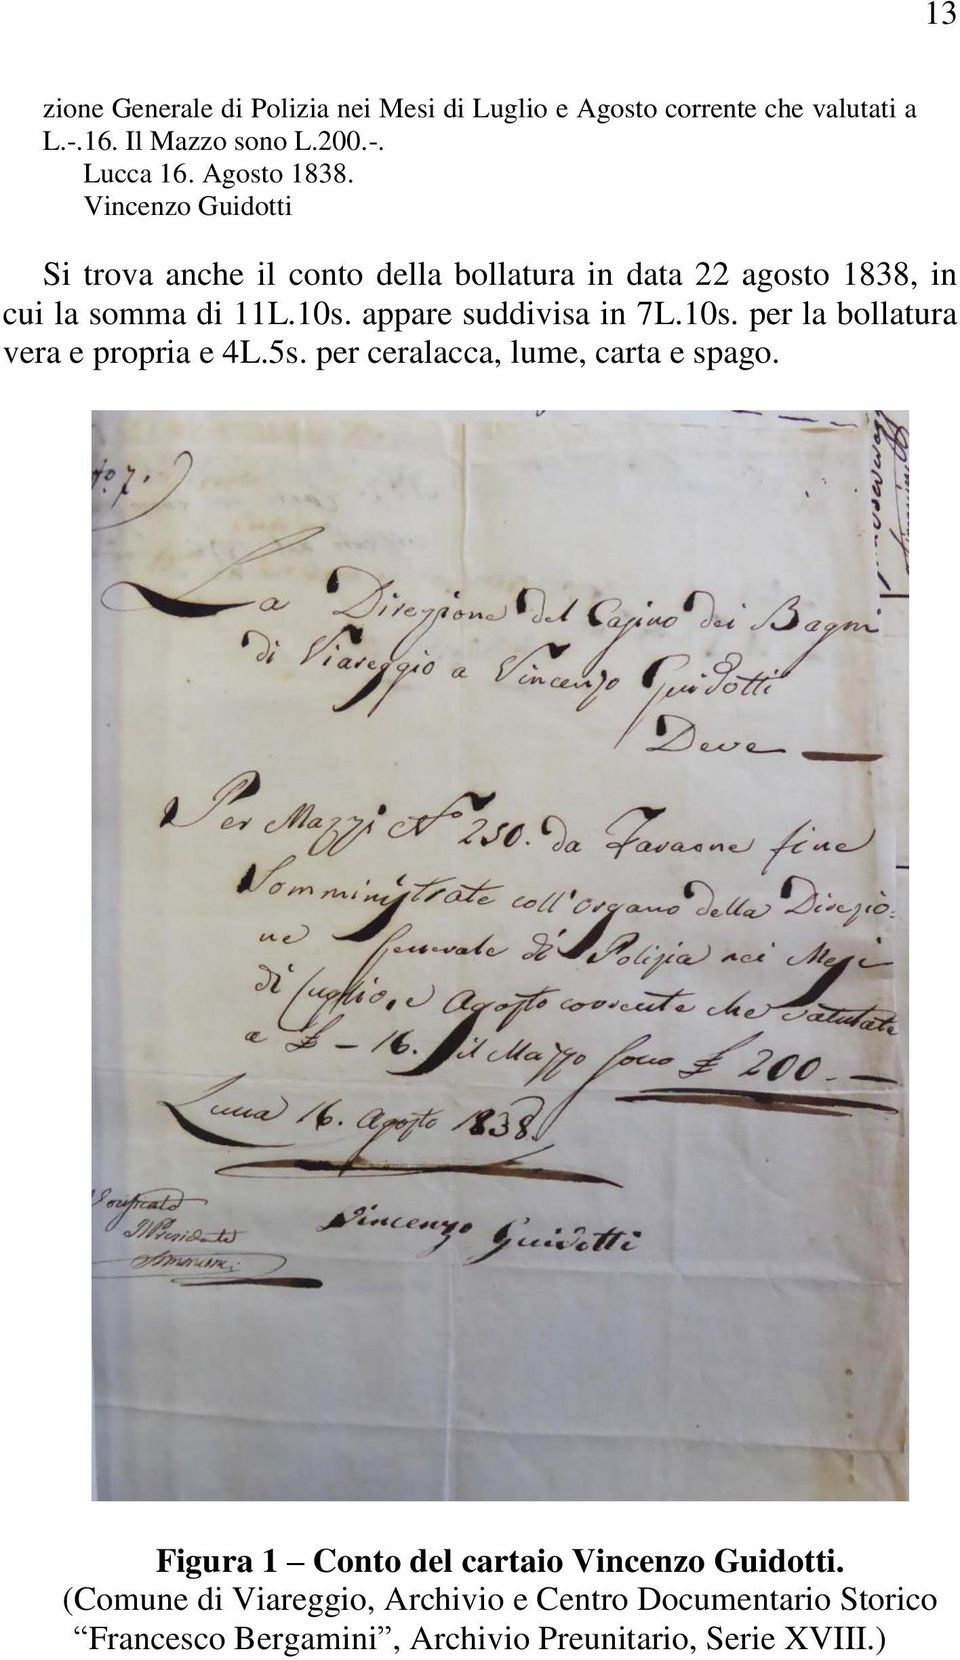 13
zione Generale di Polizia nei Mesi di Luglio e Agosto corrente che valutati a
L.-.16. Il Mazzo sono L.200.-.
Lucca 16. Agosto 1838.
Vincenzo Guidotti
Si trova anche il conto della bollatura in data 22 agosto 1838, in
cui la somma di 11L.10s. appare suddivisa in 7L.10s. per la bollatura
vera e propria e 4L.5s. per ceralacca, lume, carta e spago.
No. 7.
La Direzione del Casino dei Bagni
di Viareggio a Vincenzo Guidotti
Deve —
Per Mazzi No 250. da Faraone fine
Somministrate coll'organo della Direzio-
ne Generale di Polizia nei Mesi
di Luglio, e Agosto corrente che valutate
a £ – 16. il Mazzo sono £ 200. –
Lucca 16. Agosto 1838.
Verificato
Il Presidente
Vincenzo Guidotti
Figura 1 – Conto del cartaio Vincenzo Guidotti.
(Comune di Viareggio, Archivio e Centro Documentario Storico
“Francesco Bergamini”, Archivio Preunitario, Serie XVIII.)